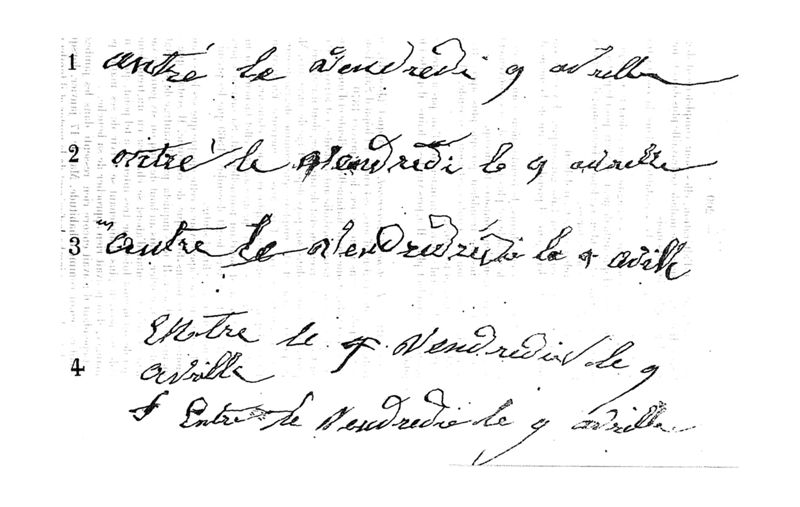 1 antré le vendredi 9 avrille
2 ontré le vendredi le 9 avrille
3 antre le le 9
4 Entre le 9 vendredi le 9
aville
Entre le vendredi le 9 avrille